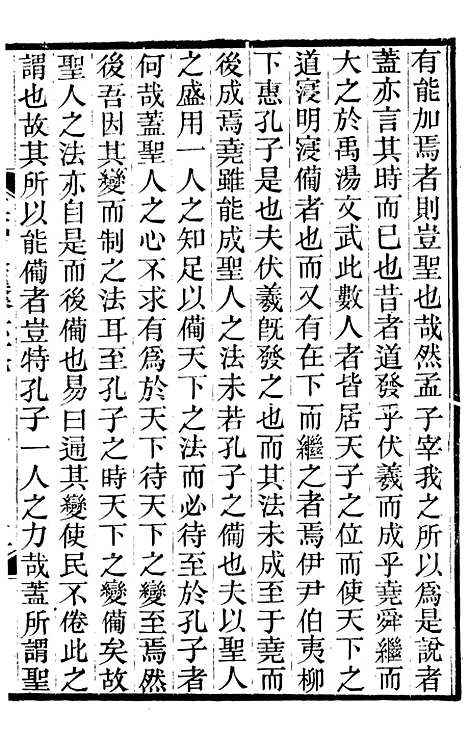 有能加焉者則豈聖也哉然孟子宰我之所以爲是說者
蓋亦言其時而已也昔者道發乎伏羲而成乎堯舜繼而
大之於禹湯文武此數人者皆居天子之位而使天下之
道寖明寖備者也而又有在下而繼之者焉伊尹伯夷柳
下惠孔子是也夫伏羲旣發之也而其法未成至于堯而
後成焉堯雖能成聖人之法未若孔子之備也夫以聖人
之盛用一人之知足以備天下之法而必待至於孔子者
何哉蓋聖人之心不求有爲於天下待天下之變至焉然
後吾因其變而制之法耳至孔子之時天下之變備矣故
聖人之法亦自是而後備也易曰通其變使民不倦此之
謂也故其所以能備者豈特孔子一人之力哉蓋所謂聖